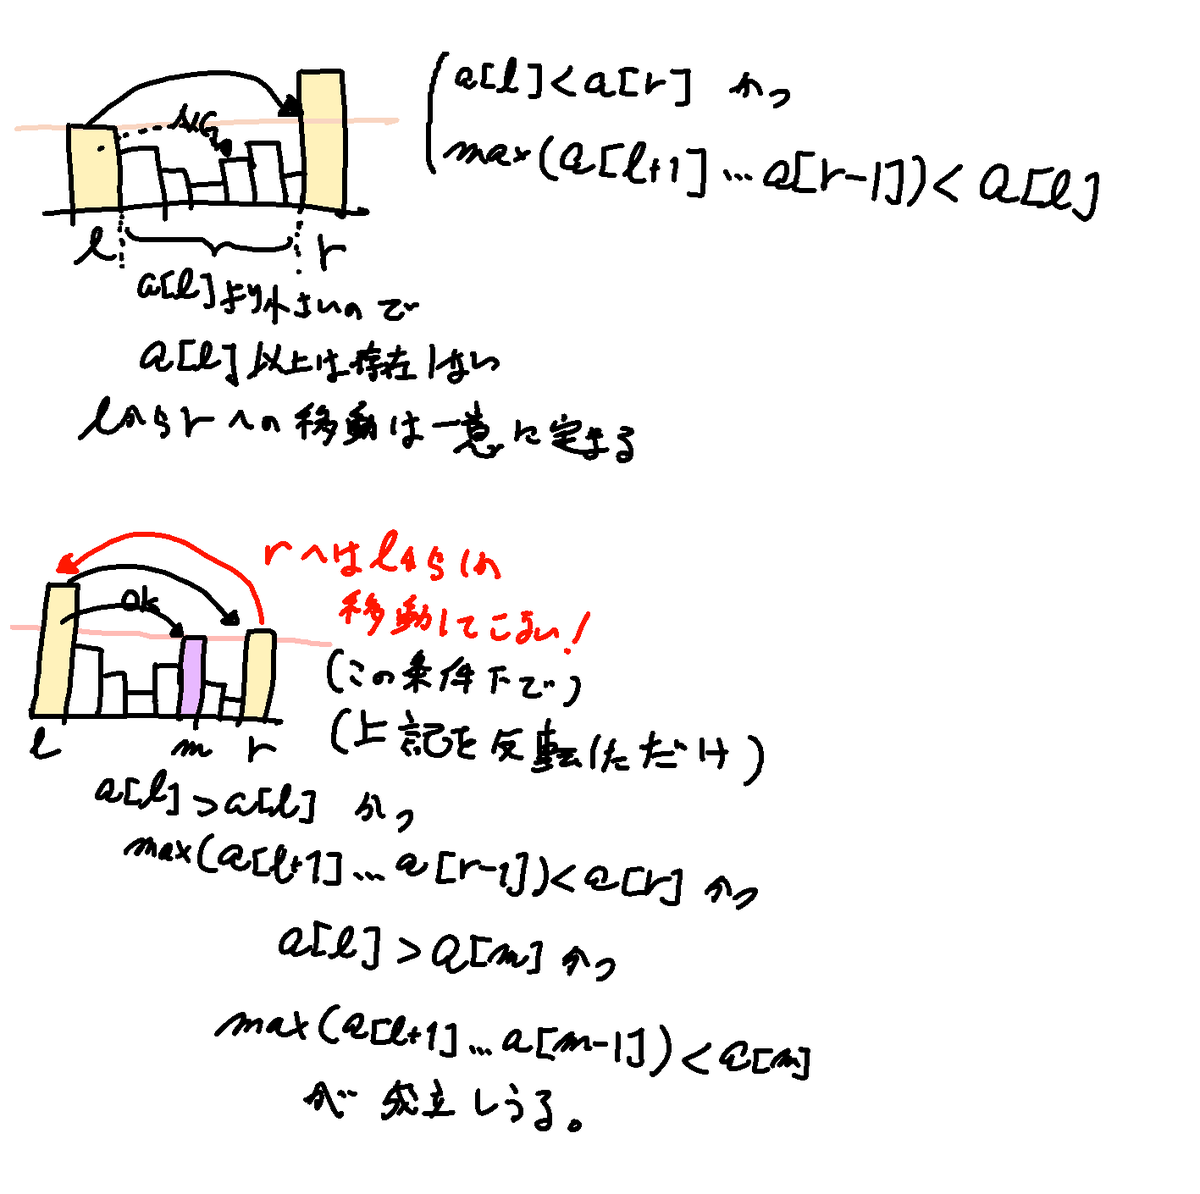 a[l]<a[r] かつ
max(a[l+1]…a[r-1])<a[l]
NG
l r
a[l]より小さいので
a[l]以上は存在しない
lからrへの移動は一意に定まる
rへはlからしか
移動してこない!
ok
(この条件下で)
(上記を反転しただけ)
l m r
a[l]>a[l] かつ
max(a[l+1]…a[r-1])<a[r] かつ
a[l]>a[m] かつ
max(a[l+1]…a[m-1])<a[m]
が成立しうる。